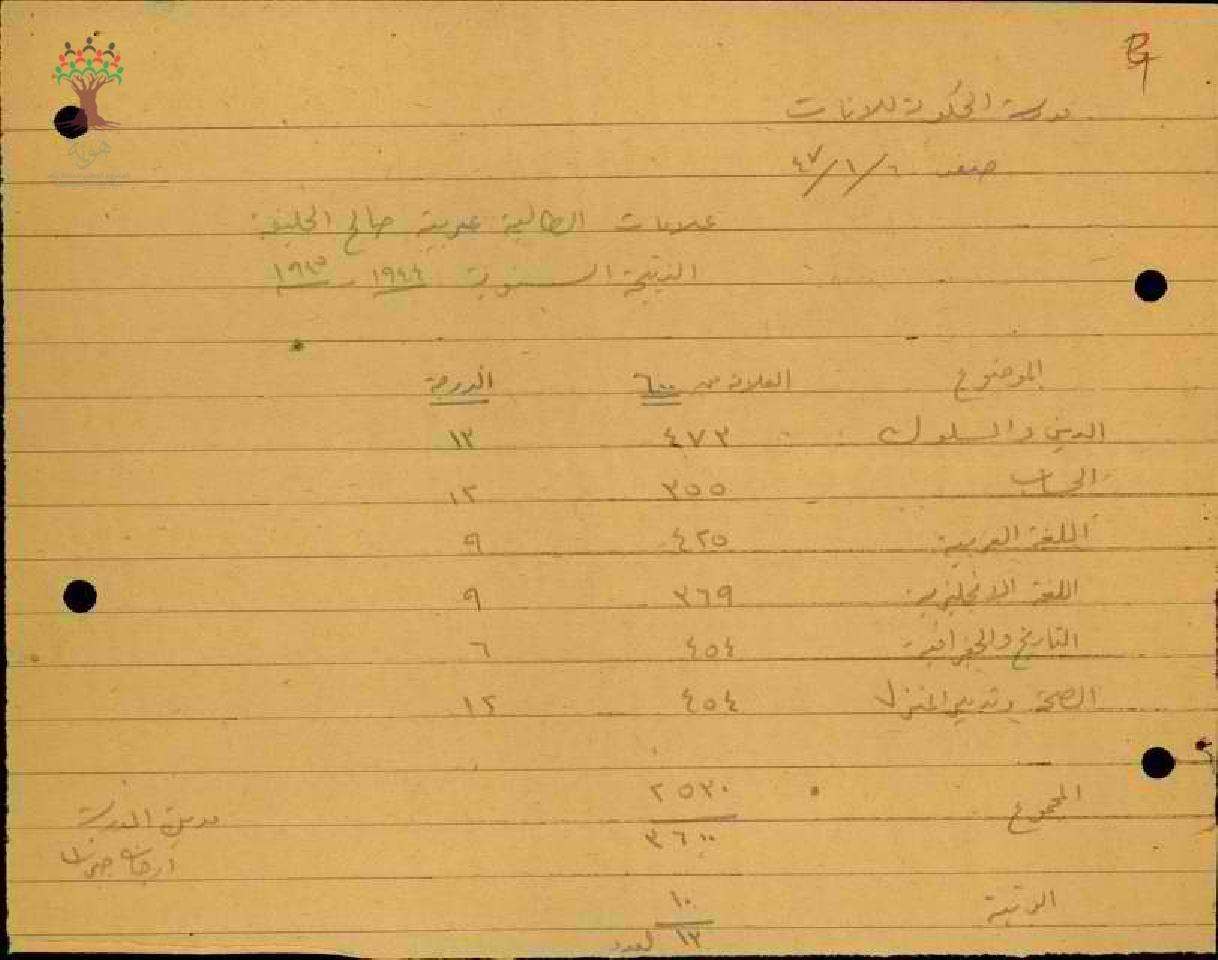 مدرسة الحكومة للاناث
صفد ٦/١/٤٧
علامات الطالبة عربية صالح الخليفة
النتيجة السنوية ١٩٤٤ - ١٩٤٥
الموضوع العلامة من ٦٠٠ الدرجة
الدين والسلوك ٤٧٣ ١٣
الحساب ٣٥٥ ١٢
اللغة العربية ٤٢٥ ٩
اللغة الانجليزية ٣٦٩ ٩
التاريخ والجغرافية ٤٥٤ ٦
الصحة وتدبير المنزل ٤٥٤ ١٢
المجموع ٢٥٣٠
٣٦٠٠
مديرة المدرسة
الرتبة ١٠
١٣ العدد
هوية